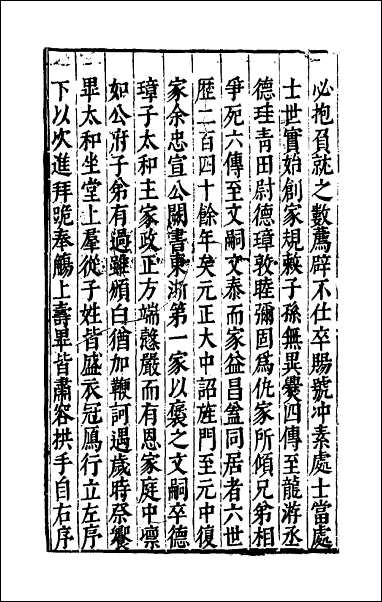 必抱負就之數薦辟不仕卒賜號冲素處士當處
士世實始創家規敕子孫無異爨四傳至龍游丞
德珪青田尉德璋敦睦彌固爲仇家所傾兄弟相
爭死六傳至文嗣文泰而家益昌盆同居者六世
歴二百四十餘年矣元正大中詔旌門至元中復
家余忠宣公闕書東浙第一家以褒之文嗣卒德
璋子太和主家政正方端慤嚴而有恩家庭中凛
如公府子弟有過雖頒白猶加鞭訶遇歲時祭饗
畢太和坐堂上羣從子姓皆盛衣冠鴈行立左序
下以次進拜跪奉觴上壽畢皆肅容拱手自右序